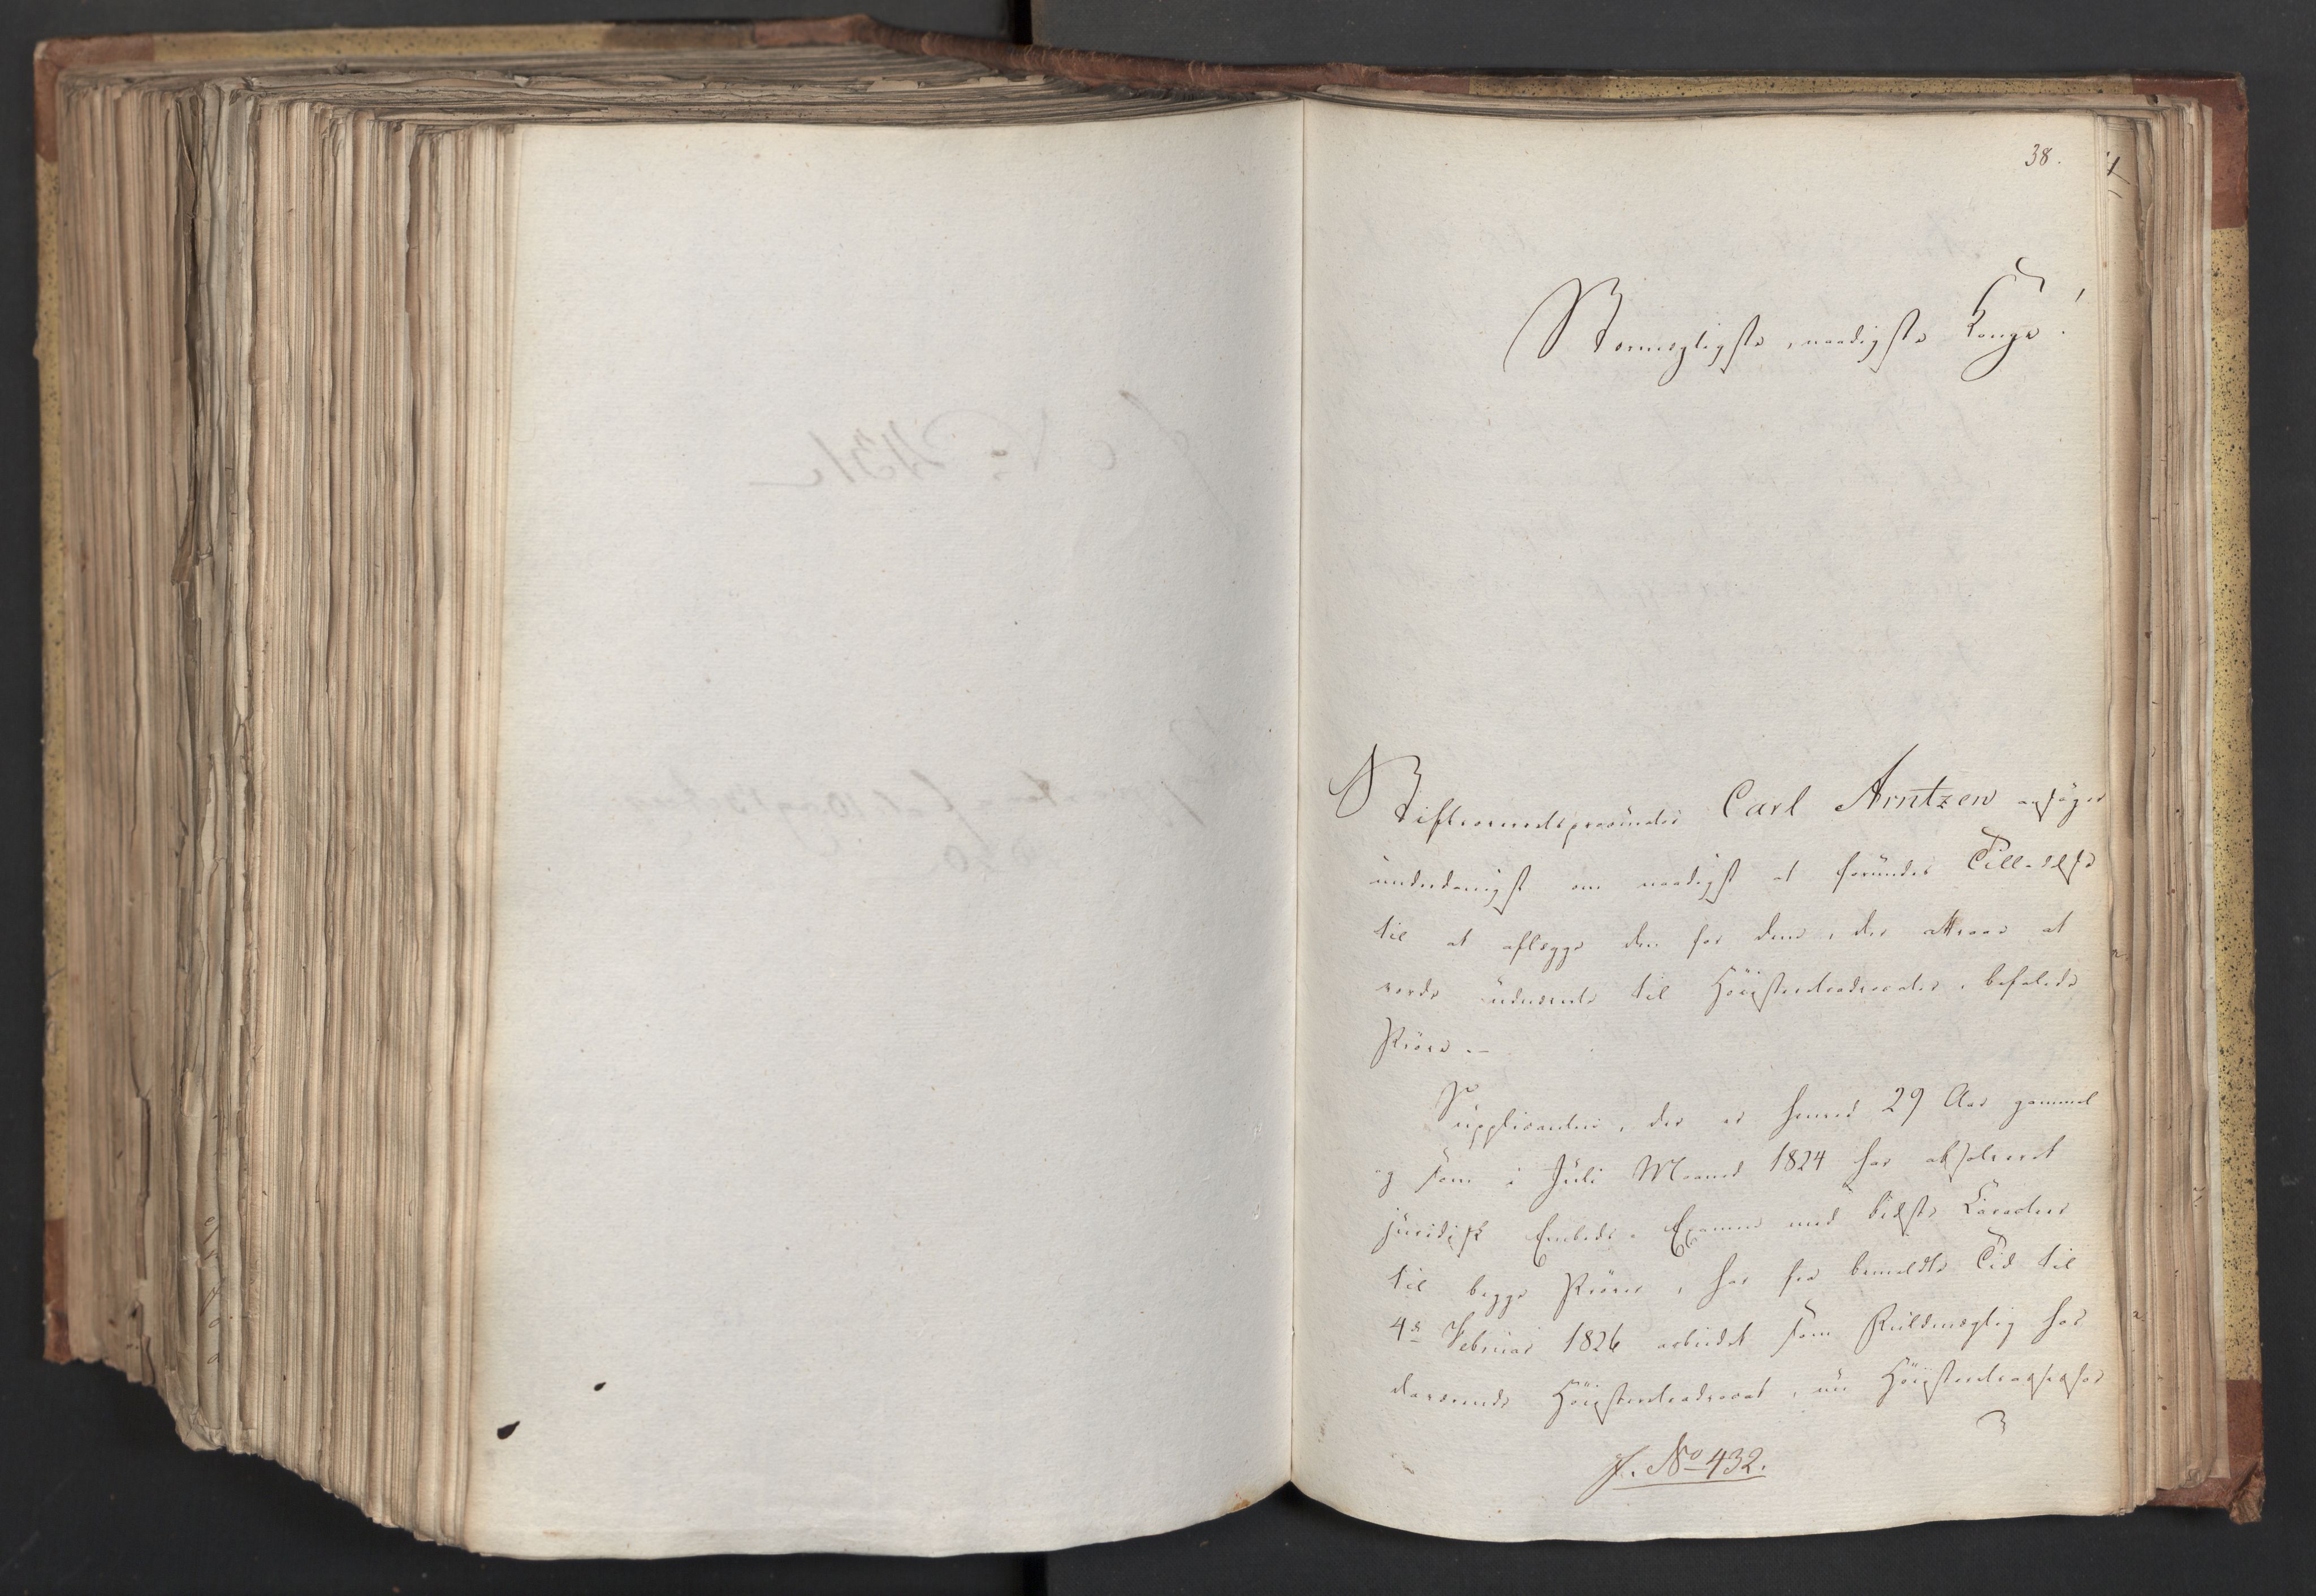 38.
Stormægtigste, naadigste Konge!
Stiftsoverretsprocurator Carl Arntzen ansøger
underdanigst om naadigst at forundes Tilladelse
til at aflægge den for dem, der attraae at
vorde udnævnte til Høiesteretsadvocater, befalede
Prøve. —
Supplicanten, der er henved 29 Aar gammel
og som i Juli Maaned 1824 har absolveret
juridisk Embeds-Examen med bedste Caracteer
til begge Prøver, har fra bemeldte Tid til
4de Februar 1826 arbeidet som Fuldmægtig hos
daværende Høiesteretsadvocat, nu Høiesteretsassessor
J. No 432.